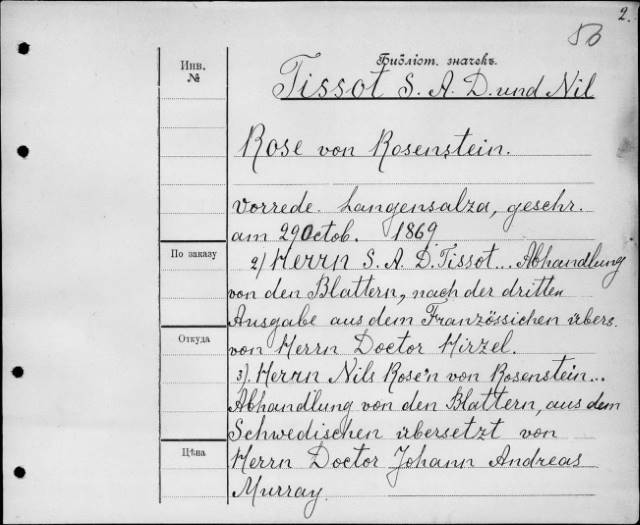 2.
50
Инв.
№
Библіот. значекъ.
Tissot S. A. D. und Nil
Rose von Rosenstein.
Vorrede. Langensalza, geschr.
am 29 Octob. 1869
По заказу
2) Herrn S. A. D. Tissot... Abhandlung
von den Blattern, nach der dritten
Ausgabe aus dem Französsichen übers.
Откуда
von Herrn Doctor Hirzel.
3). Herrn Nils Rose'n von Rosenstein...
Abhandlung von den Blattern, aus dem
Schwedischen übersetzt von
Цѣна
Herrn Doctor Johann Andreas
Murray.